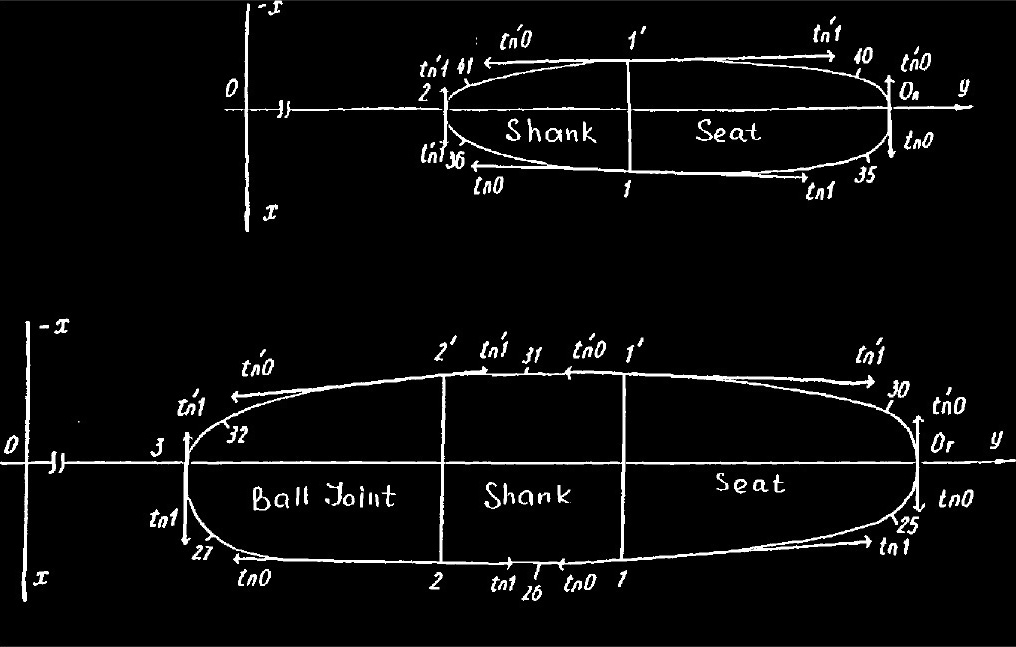 -x
tn'0 1' tn'1
tn'1 41 40 tn'0
0 2 Oл y
Shank Seat
tn'1 36 tn0
tn0 1 tn1 35
x
-x
tn'0 2' tn'1 31 tn'0 1' tn'1
tn'1 32 30 tn'0
0 3 Or y
Ball Joint Shank Seat
tn1 27 25 tn0
x tn0 2 tn1 26 tn0 1 tn1